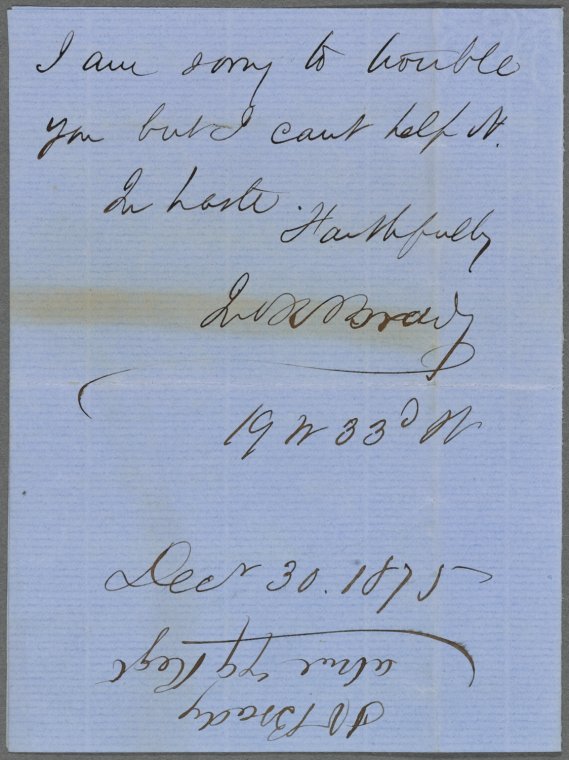 I am sorry to trouble
you but I cant help it.
In haste.
Faithfully
Brady
19 W 33d St
Decr 30. 1875
Brady
Regt